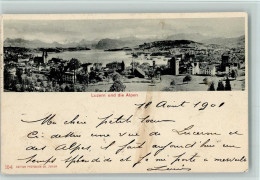 Luzern und die Alpen
10 Aout 1901
Ma chère petite soeur
Ci dessus une vue de Lucerne et
des Alpes. Il fait aujourd'hui un
temps splendide et je me porte à merveille
Louis